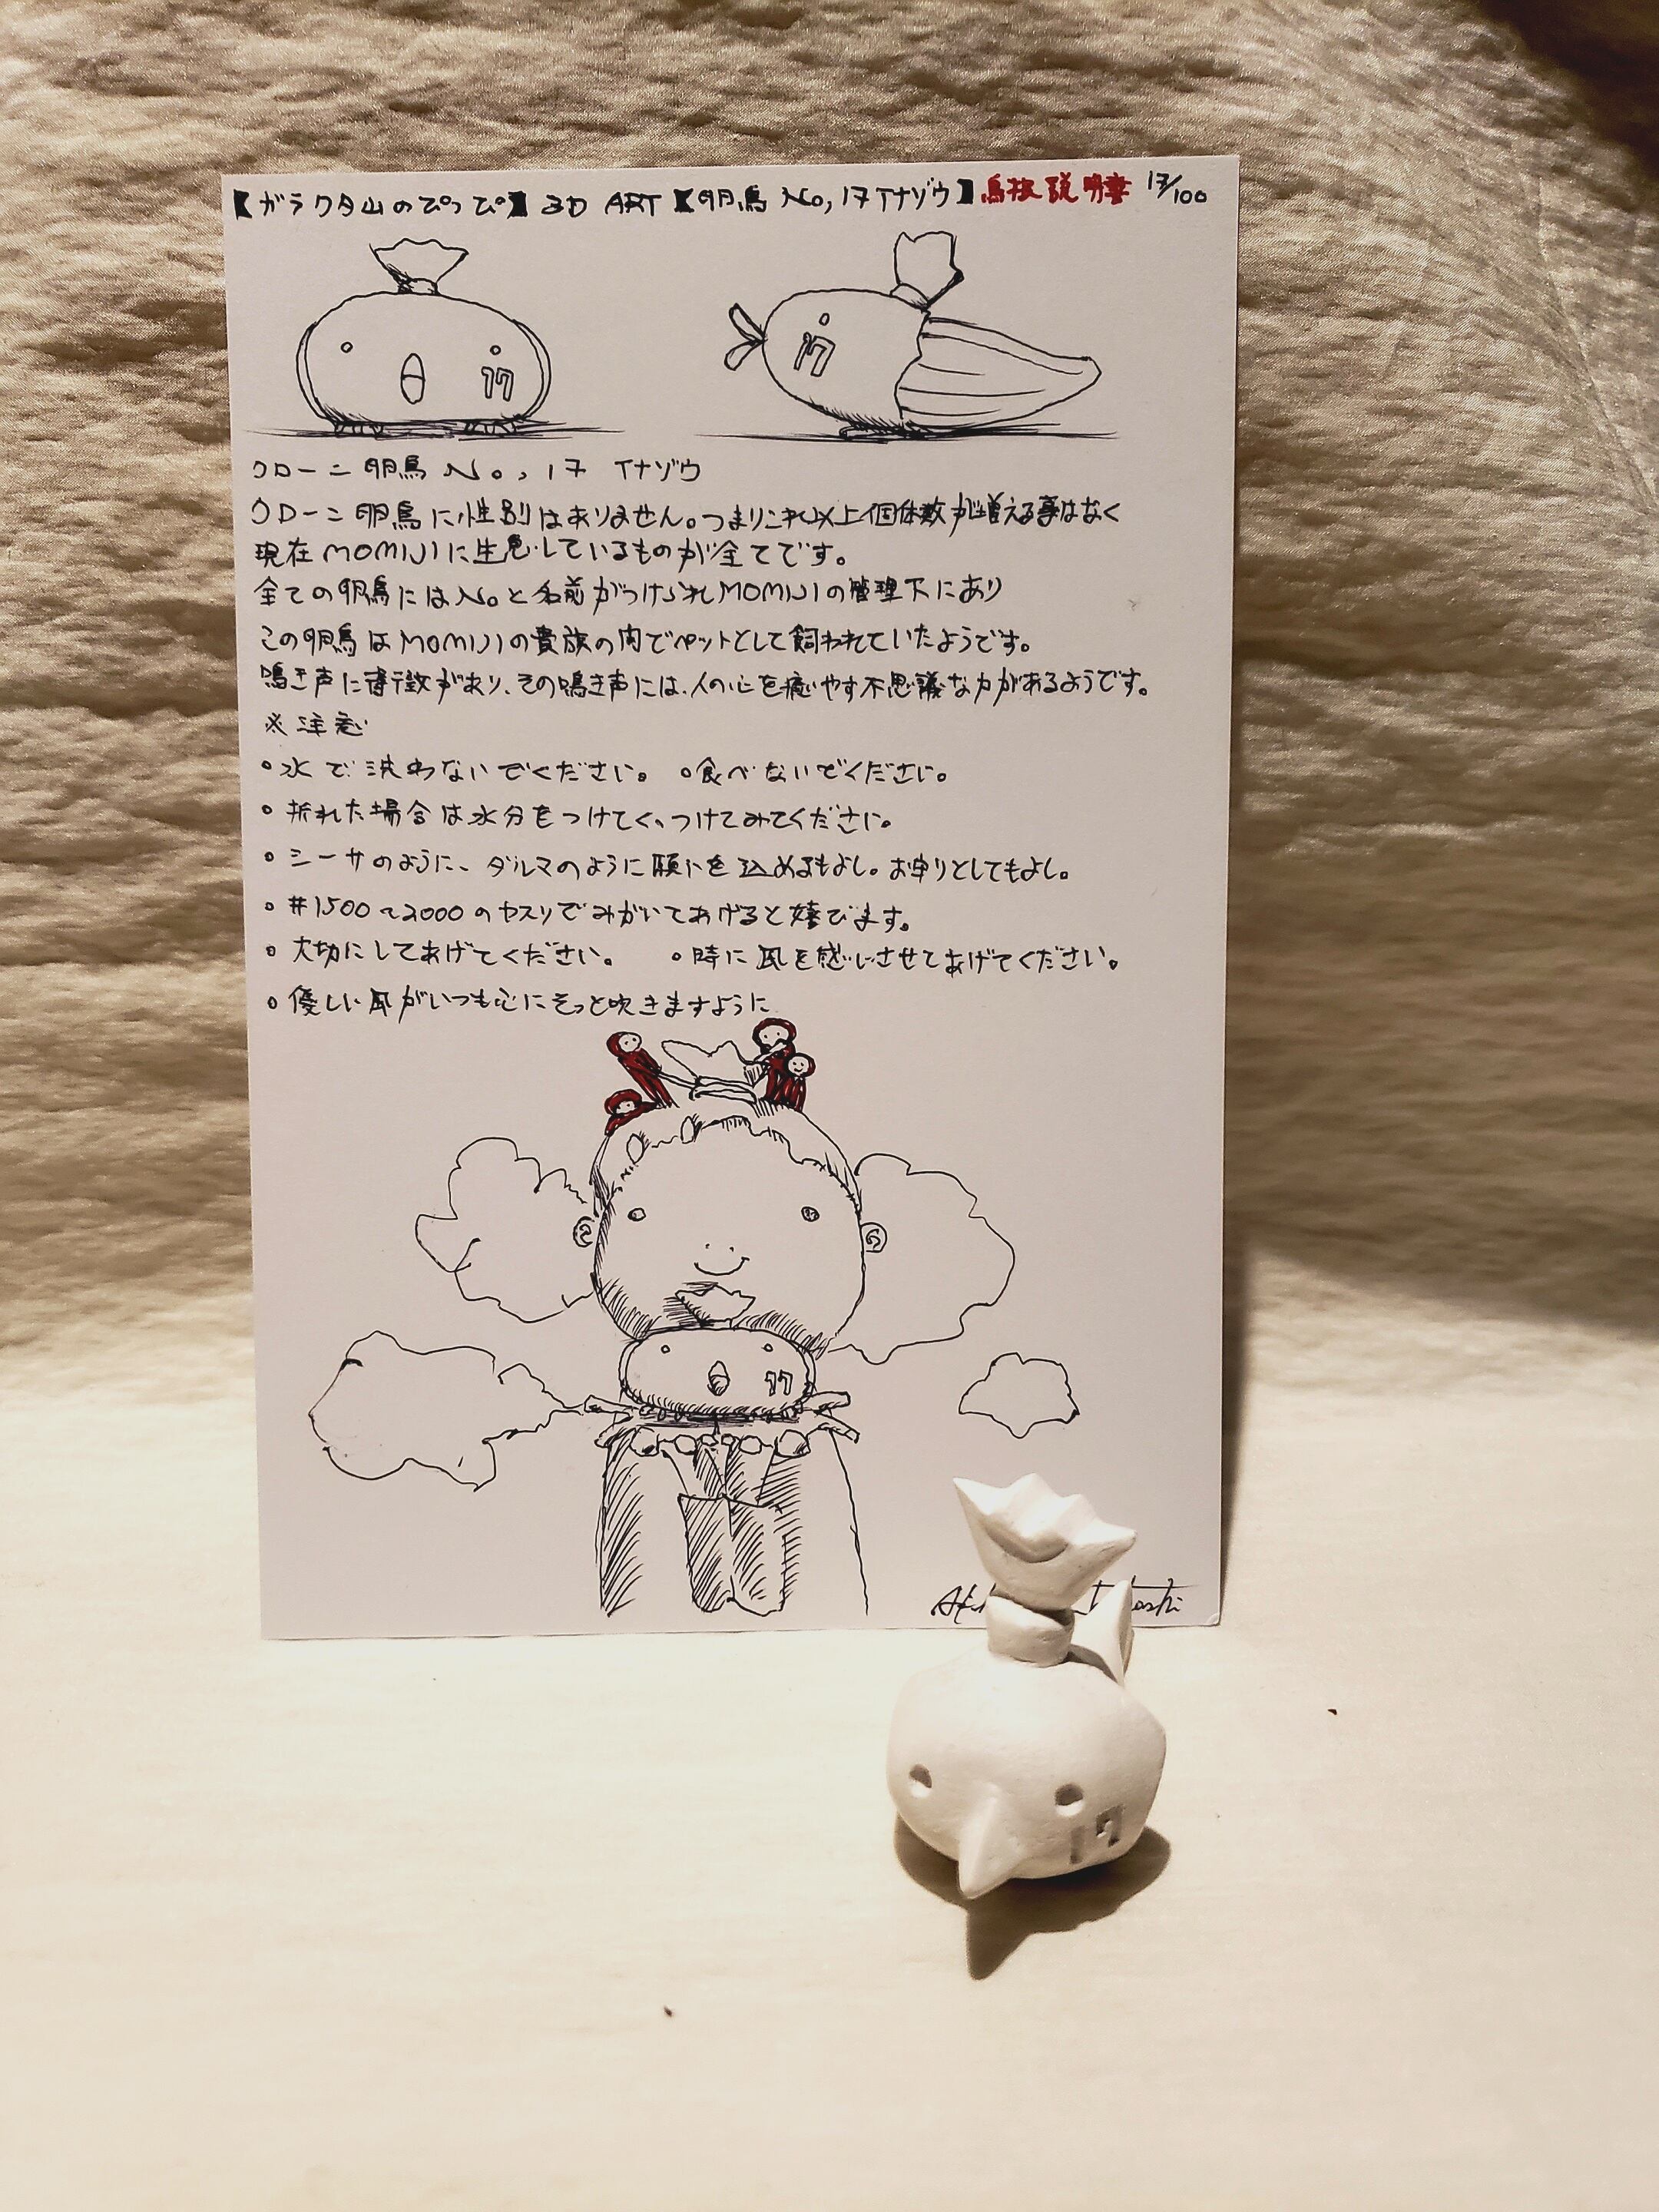 【ガラクタ山のぴっぴ】3D ART【卵鳥 No,17 イナゾウ】鳥扱説明書 17/100
17
17
クローン卵鳥 No,17 イナゾウ
クローン卵鳥に性別はありません。つまりこれ以上個体数が増える事はなく
現在MOMIJIに生息しているものが全てです。
全ての卵鳥にはNoと名前がつけられMOMIJIの管理下にあり
この卵鳥はMOMIJIの貴族の内でペットとして飼われていたようです。
鳴き声に特徴があり、その鳴き声には、人の心を癒やす不思議な力があるようです。
※注意
・水で洗わないでください。 ・食べないでください。
・折れた場合は水分をつけてくっつけてみてください。
・シーサのように、ダルマのように願いを込めるもよし。お守りとしてもよし。
・#1500~2000のヤスリでみがいてあげると喜びます。
・大切にしてあげてください。 ・時に風を感じさせてあげてください。
・優しい風がいつも心にそっと吹きますように
17
17